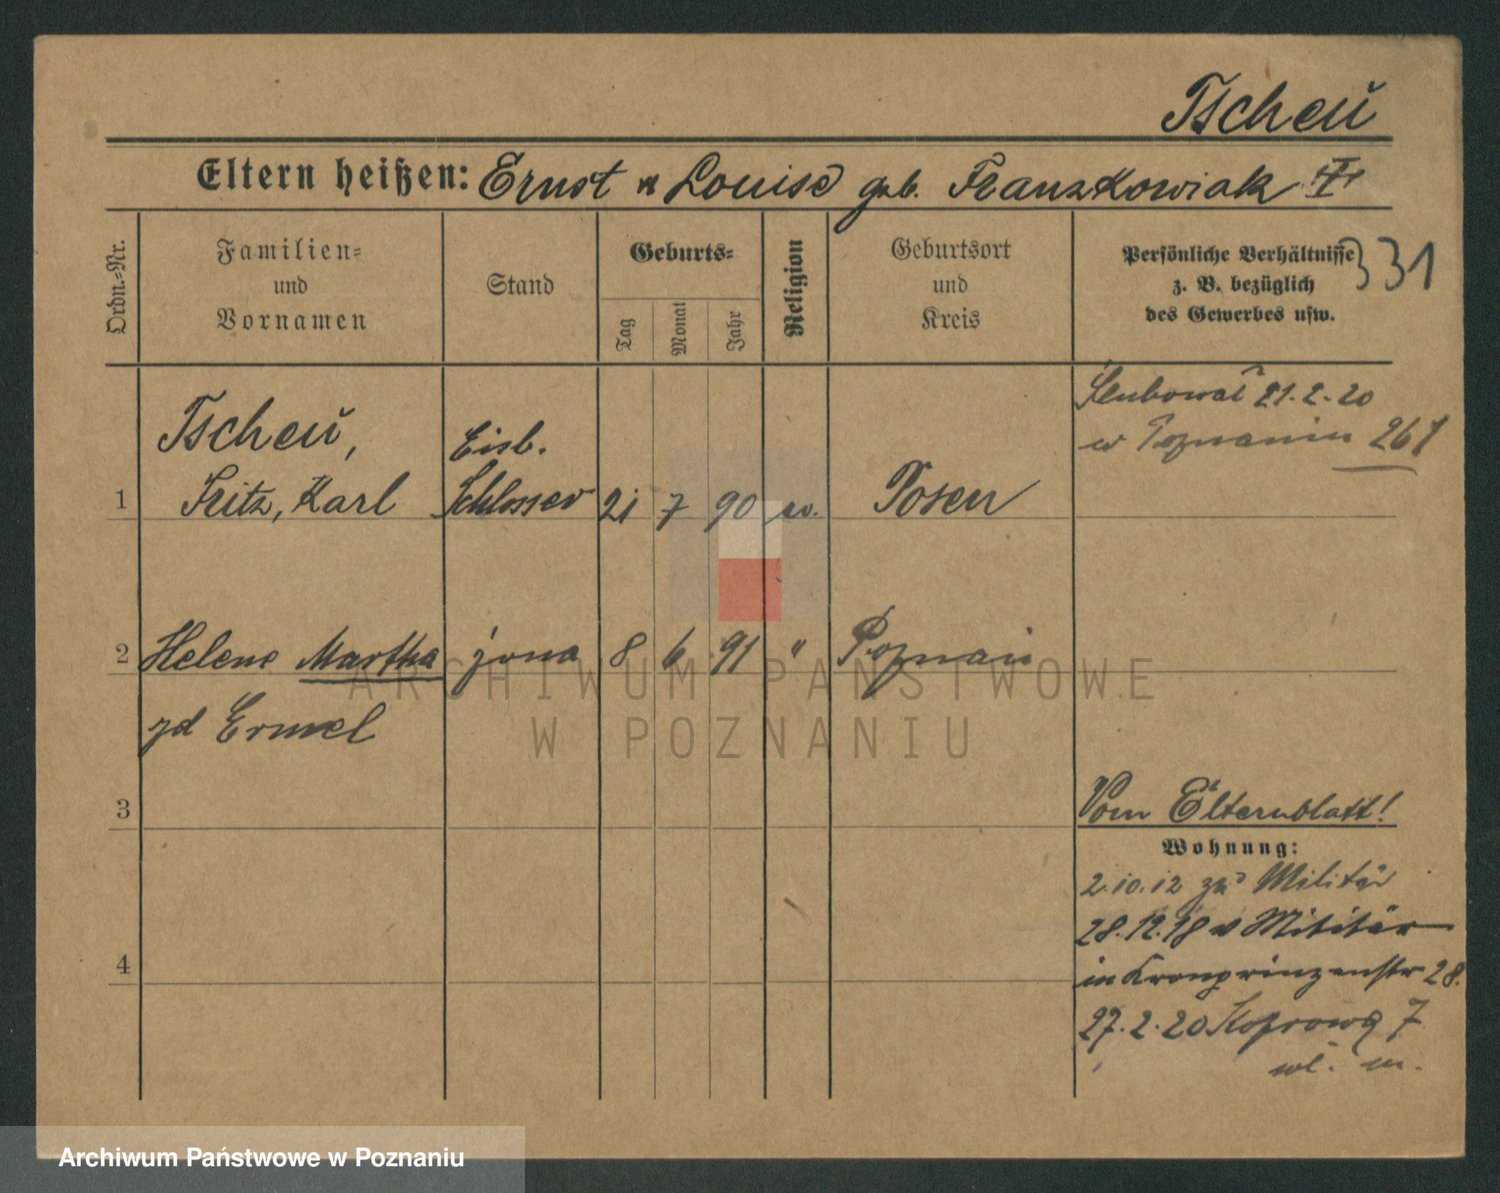 Tscheu
Eltern heißen: Ernst u Louise geb. Franzkowiak
Ordn.=Nr.
Familien=
und
Vornamen
Stand
Geburts=
Tag
Monat
Jahr
Religion
Geburtsort
und
Kreis
Persönliche Verhältnisse
z. B. bezüglich
des Gewerbes usw.
331
1
Tscheu,
Fritz, Karl
Eisb.
Schlosser
21 7 90 ev.
Posen
Ślubował 21.2.20
w Poznaniu 267
2
Helene Martha żona 8 6 91 " Poznań
zd Ermel
3
Vom Elternblatt!
Wohnung:
2.10.12 zu Militär
28.12.18 v Militär
in Kronprinzenstr 28.
27.2.20 7
4
ARCHIWUM PAŃSTWOWE
W POZNANIU
Archiwum Państwowe w Poznaniu